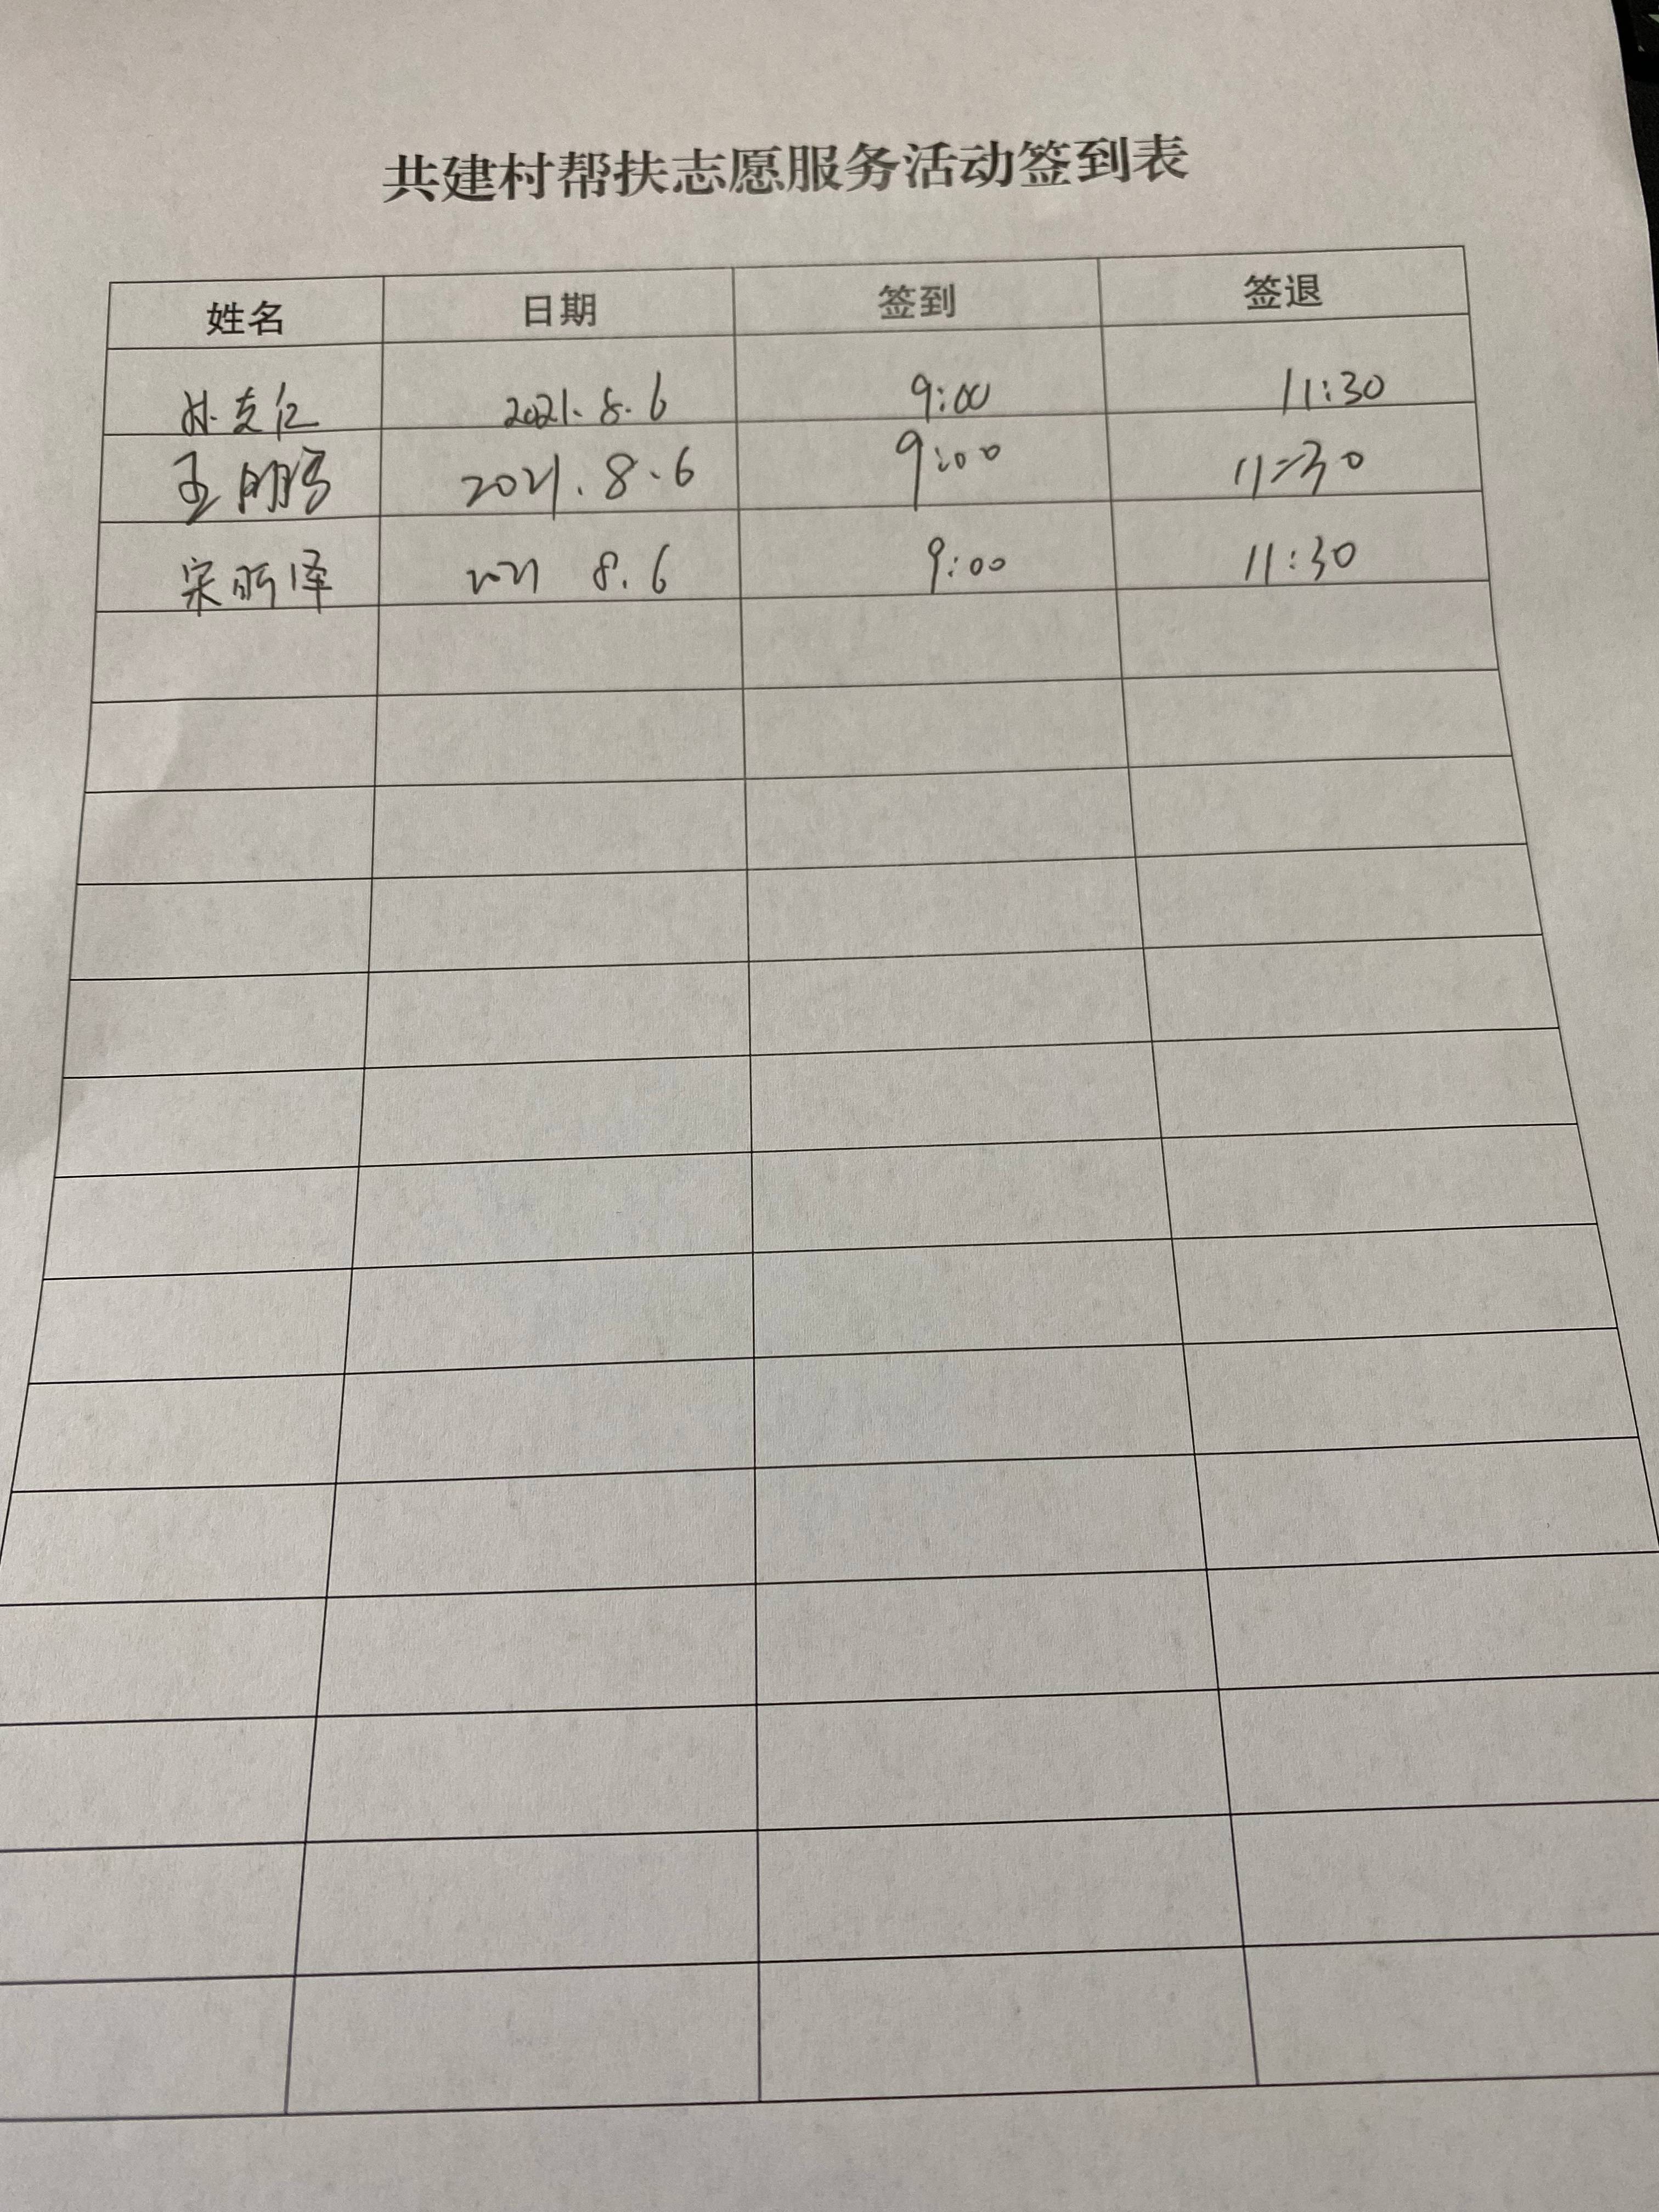 共建村帮扶志愿服务活动签到表
姓名 日期 签到 签退
2021.8.6 9:00 11:30
王鹏 2021.8.6 9:00 11:30
宋 泽 2021 8.6 9:00 11:30